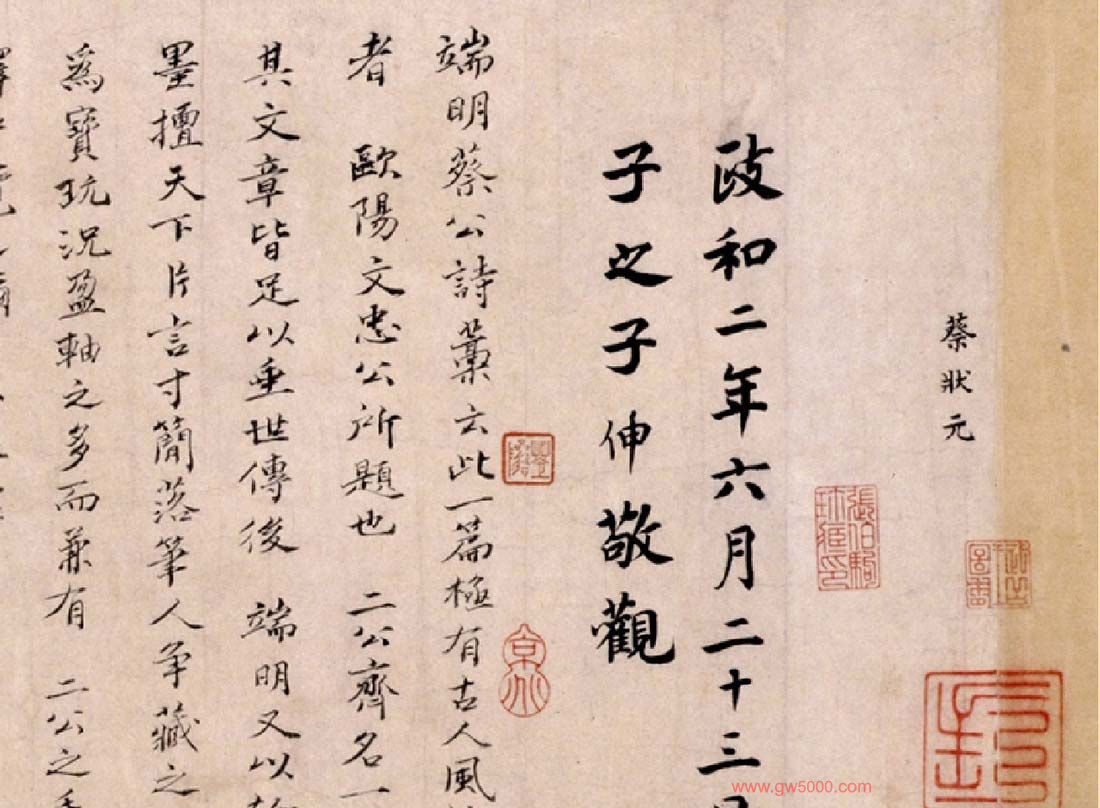 蔡狀元
政和二年六月二十三
子之子伸敬觀
端明蔡公詩藁云此一篇極有古人風
者 歐陽文忠公所題也 二公齊名一
其文章皆足以垂世傳後 端明又以
墨擅天下片言寸簡落筆人爭藏之
爲寶玩況盈軸之多而兼有 二公之
張伯駒
www.gw5000.com